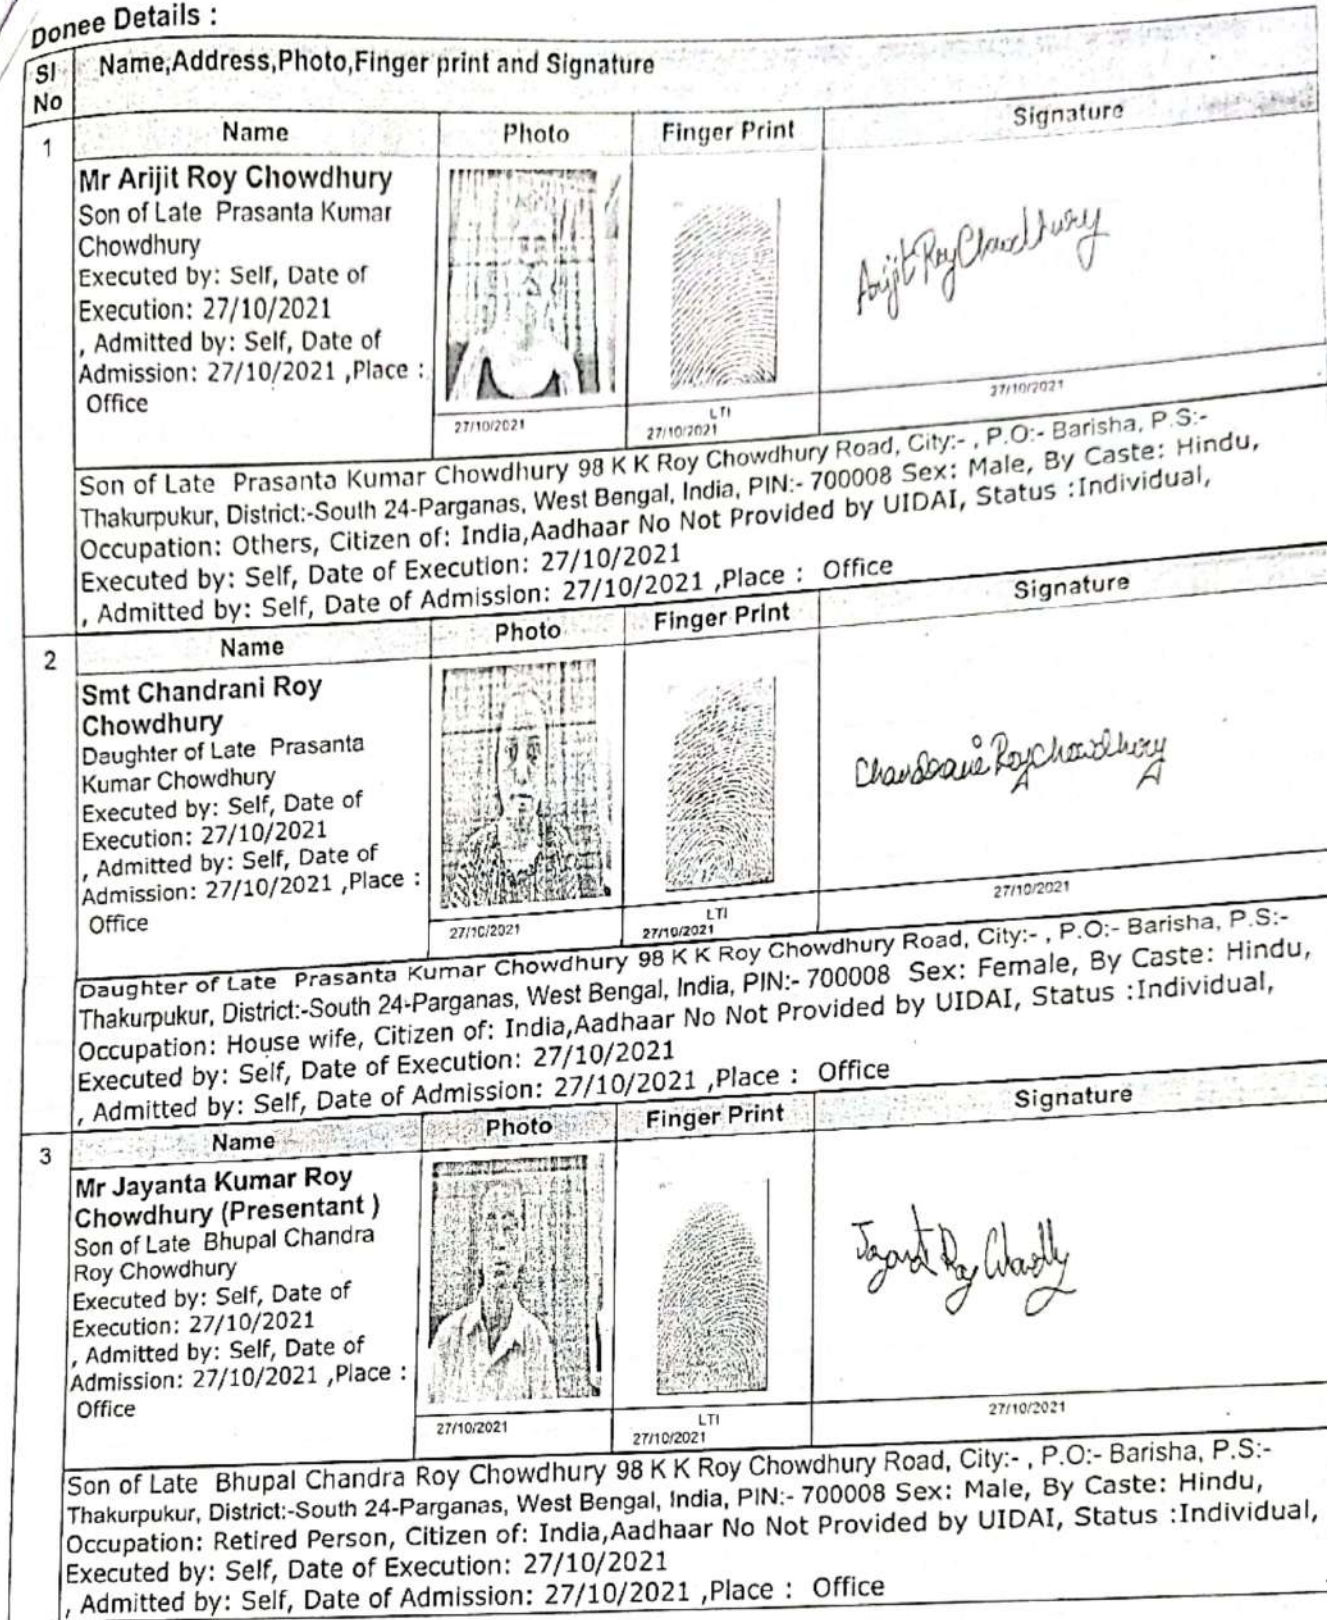 Donee Details :
Sl No
Name,Address,Photo,Finger print and Signature
1
Name
Photo
Finger Print
Signature
Mr Arijit Roy Chowdhury
Son of Late Prasanta Kumar
Chowdhury
Executed by: Self, Date of
Execution: 27/10/2021
, Admitted by: Self, Date of
Admission: 27/10/2021 ,Place :
Office
Arijit Roy Chowdhury
27/10/2021
LTI
27/10/2021
27/10/2021
Son of Late Prasanta Kumar Chowdhury 98 K K Roy Chowdhury Road, City:- , P.O:- Barisha, P.S:-
Thakurpukur, District:-South 24-Parganas, West Bengal, India, PIN:- 700008 Sex: Male, By Caste: Hindu,
Occupation: Others, Citizen of: India,Aadhaar No Not Provided by UIDAI, Status :Individual,
Executed by: Self, Date of Execution: 27/10/2021
, Admitted by: Self, Date of Admission: 27/10/2021 ,Place : Office
2
Name
Photo
Finger Print
Signature
Smt Chandrani Roy
Chowdhury
Daughter of Late Prasanta
Kumar Chowdhury
Executed by: Self, Date of
Execution: 27/10/2021
, Admitted by: Self, Date of
Admission: 27/10/2021 ,Place :
Office
Chandrani Roy Chowdhury
27/10/2021
LTI
27/10/2021
27/10/2021
Daughter of Late Prasanta Kumar Chowdhury 98 K K Roy Chowdhury Road, City:- , P.O:- Barisha, P.S:-
Thakurpukur, District:-South 24-Parganas, West Bengal, India, PIN:- 700008 Sex: Female, By Caste: Hindu,
Occupation: House wife, Citizen of: India,Aadhaar No Not Provided by UIDAI, Status :Individual,
Executed by: Self, Date of Execution: 27/10/2021
, Admitted by: Self, Date of Admission: 27/10/2021 ,Place : Office
3
Name
Photo
Finger Print
Signature
Mr Jayanta Kumar Roy
Chowdhury (Presentant )
Son of Late Bhupal Chandra
Roy Chowdhury
Executed by: Self, Date of
Execution: 27/10/2021
, Admitted by: Self, Date of
Admission: 27/10/2021 ,Place :
Office
Jayanta Roy Chowdhury
27/10/2021
LTI
27/10/2021
27/10/2021
Son of Late Bhupal Chandra Roy Chowdhury 98 K K Roy Chowdhury Road, City:- , P.O:- Barisha, P.S:-
Thakurpukur, District:-South 24-Parganas, West Bengal, India, PIN:- 700008 Sex: Male, By Caste: Hindu,
Occupation: Retired Person, Citizen of: India,Aadhaar No Not Provided by UIDAI, Status :Individual,
Executed by: Self, Date of Execution: 27/10/2021
, Admitted by: Self, Date of Admission: 27/10/2021 ,Place : Office